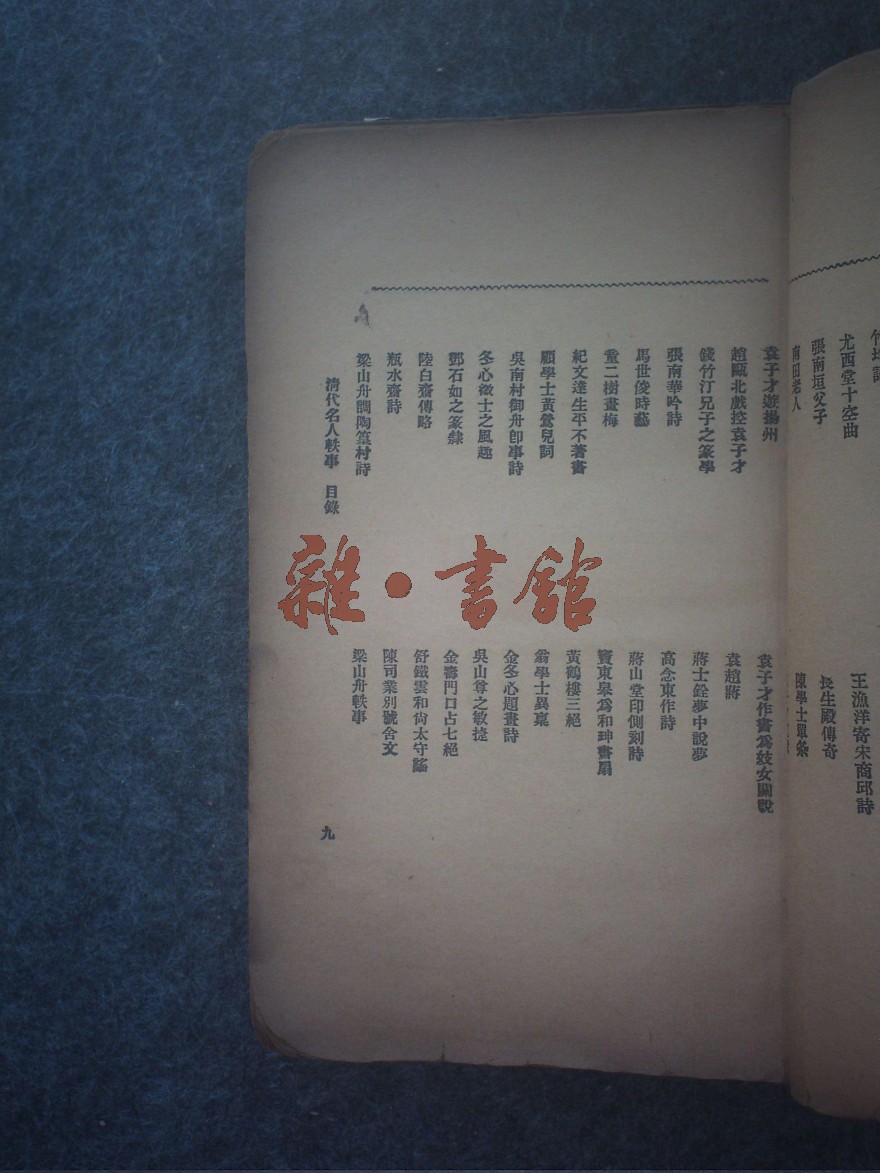 尤西堂十空曲
張南垣父子
南田老人
王漁洋寄宋商邱詩
長生殿傳奇
陳學士單条
袁子才遊揚州
趙甌北戲控袁子才
錢竹汀兄子之篆學
張南華吟詩
馬世俊時藝
童二樹畫梅
紀文達生平不著書
顧學士黃鶯兒詞
吳南村御舟卽事詩
冬心徵士之風趣
鄧石如之篆隸
陸白齋傳略
瓶水齋詩
梁山舟調陶篁村詩
袁子才作書爲妓女關說
袁趙蔣
蔣士銓夢中說夢
高念東作詩
蔣山堂印側刻詩
竇東皋爲和珅書扇
黃鶴樓三絕
翁學士異稟
金冬心題畫詩
吳山尊之敏捷
金壽門口占七絕
舒鐵雲和尙太守謠
陳司業別號舍文
梁山舟軼事
清代名人軼事 目錄
九
雜·書館